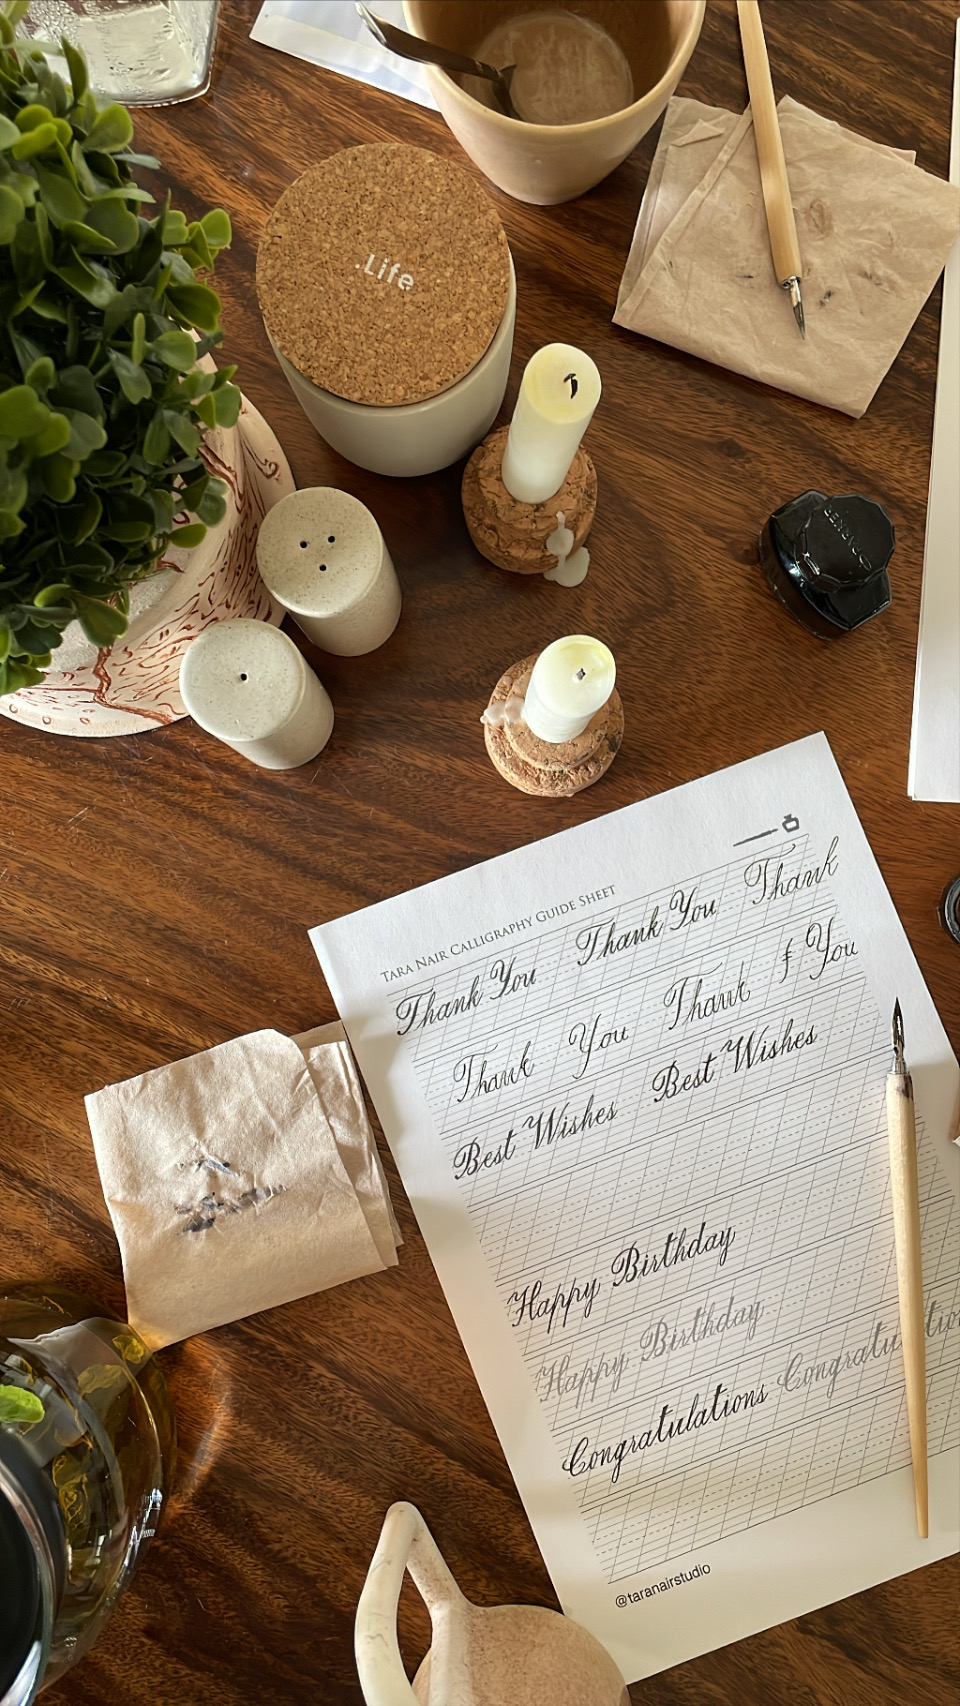 .Life
CAMEL
TARA NAIR CALLIGRAPHY GUIDE SHEET
Thank You Thank You Thank
Thank You Thank f You
Best Wishes Best Wishes
Happy Birthday
Happy Birthday
Congratulations Congratulations
@taranairstudio